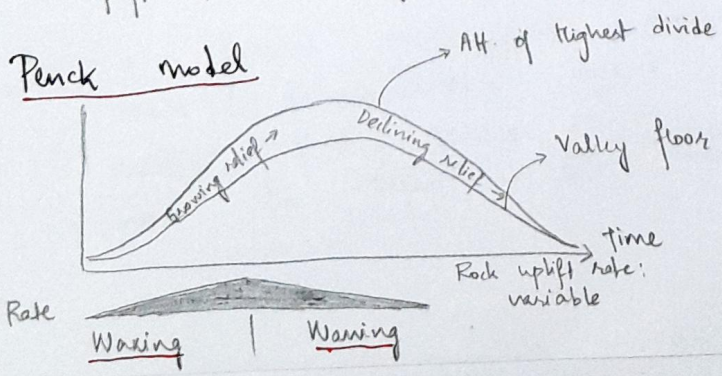 Penck model
Alt. of Highest divide
Growing relief →
Declining relief →
Valley floor
time
Rock uplift rate:
variable
Rate
Waxing
Waning